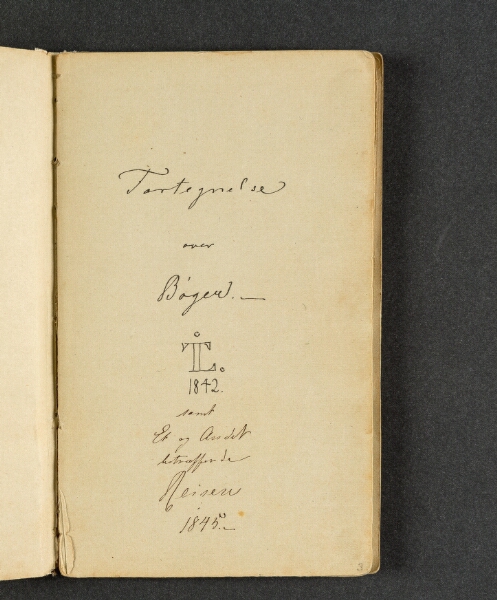 Fortegnelse
over
Bøger. —
T L.
1842.
samt
Et og Andet
betræffende
Reisen
1845. —
3